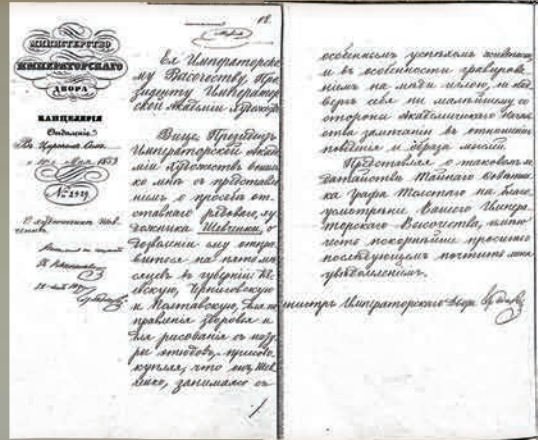 МИНИСТЕРСТВО
ИМПЕРАТОРСКАГО
ДВОРА
КАНЦЕЛЯРІЯ
Отдѣленіе
Въ Царскомъ Селѣ
Мая 1859
№ 2929
О художникѣ Шев-
ченкѣ
Ея Императорско-
му Высочеству, Пре-
зиденту Император-
ской Академіи Художествъ
Вице Президентъ
Императорской Акаде-
міи Художествъ
ко мнѣ съ представле-
ніемъ о просьбѣ от-
ставнаго рядоваго, ху-
дожника Шевченки, о
дозволеніи ему отпра-
виться на пять мѣ-
сяцевъ въ губерніи Кі-
евскую, Черниговскую
и Полтавскую, для по-
правленія здоровья и
для рисованія съ нату-
ры этюдовъ, присово-
купляя, что онъ, Шев-
ченко, занимаясь съ
особеннымъ успѣхомъ живописью
и въ особенности гравирова-
ніемъ на мѣди иглою, не под-
вергъ себя ни малѣйшему со
стороны Академическаго Началь-
ства замѣчанію въ отношеніи
поведенія и образа мыслей.
Представляя о таковомъ хо-
датайствѣ Тайнаго Совѣтни-
ка Графа Толстаго на благо-
усмотрѣніе Вашего Импера-
торскаго Высочества, имѣю
честь покорнѣйше просить о
послѣдующемъ почтить меня
увѣдомленіемъ.
Министръ Императорскаго Двора